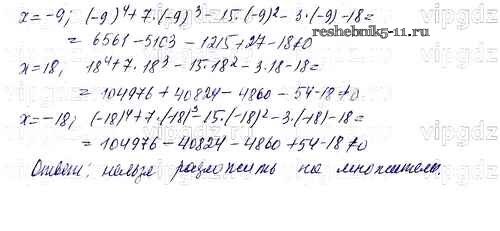 x=-9; (-9)⁴+7·(-9)³-15·(-9)²-3·(-9)-18=
= 6561-5103-1215+27-18≠0
reshebnik5-11.ru
x=18, 18⁴+7·18³-15·18²-3·18-18=
= 104976+40824-4860-54-18≠0
x=-18; (-18)⁴+7·(-18)³-15·(-18)²-3·(-18)-18=
= 104976-40824-4860+54-18≠0
Ответ: нельзя разложить на множители.
vipgdz